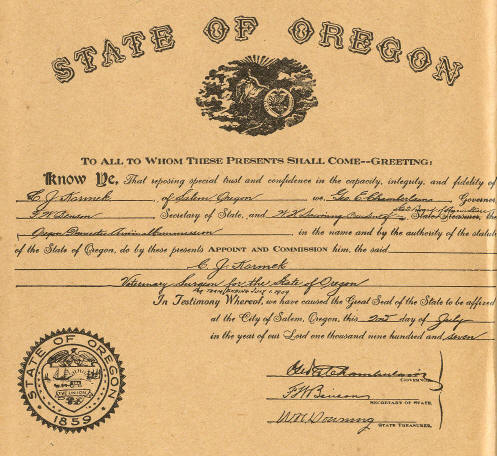 STATE OF OREGON
TO ALL TO WHOM THESE PRESENTS SHALL COME--GREETING:
Know Ye, That reposing special trust and confidence in the capacity, integrity, and fidelity of
C. J. Korinek of Salem Oregon we, Geo E Chamberlain Governor
F W Benson Secretary of State, and W H Downing President State
Oregon Domestic Animal Commission in the name and by the authority of the statute
of the State of Oregon, do by these presents APPOINT AND COMMISSION him, the said
C. J. Korinek
Veterinary Surgeon for the State of Oregon
for term ending July 1, 1909
In Testimony Whereof, we have caused the Great Seal of the State to be affixed
at the City of Salem, Oregon, this 2nd day of July
in the year of our Lord one thousand nine hundred and seven
Geo E Chamberlain
GOVERNOR.
F W Benson
SECRETARY OF STATE.
W H Downing
STATE TREASURER.
STATE OF OREGON
THE UNION
1859